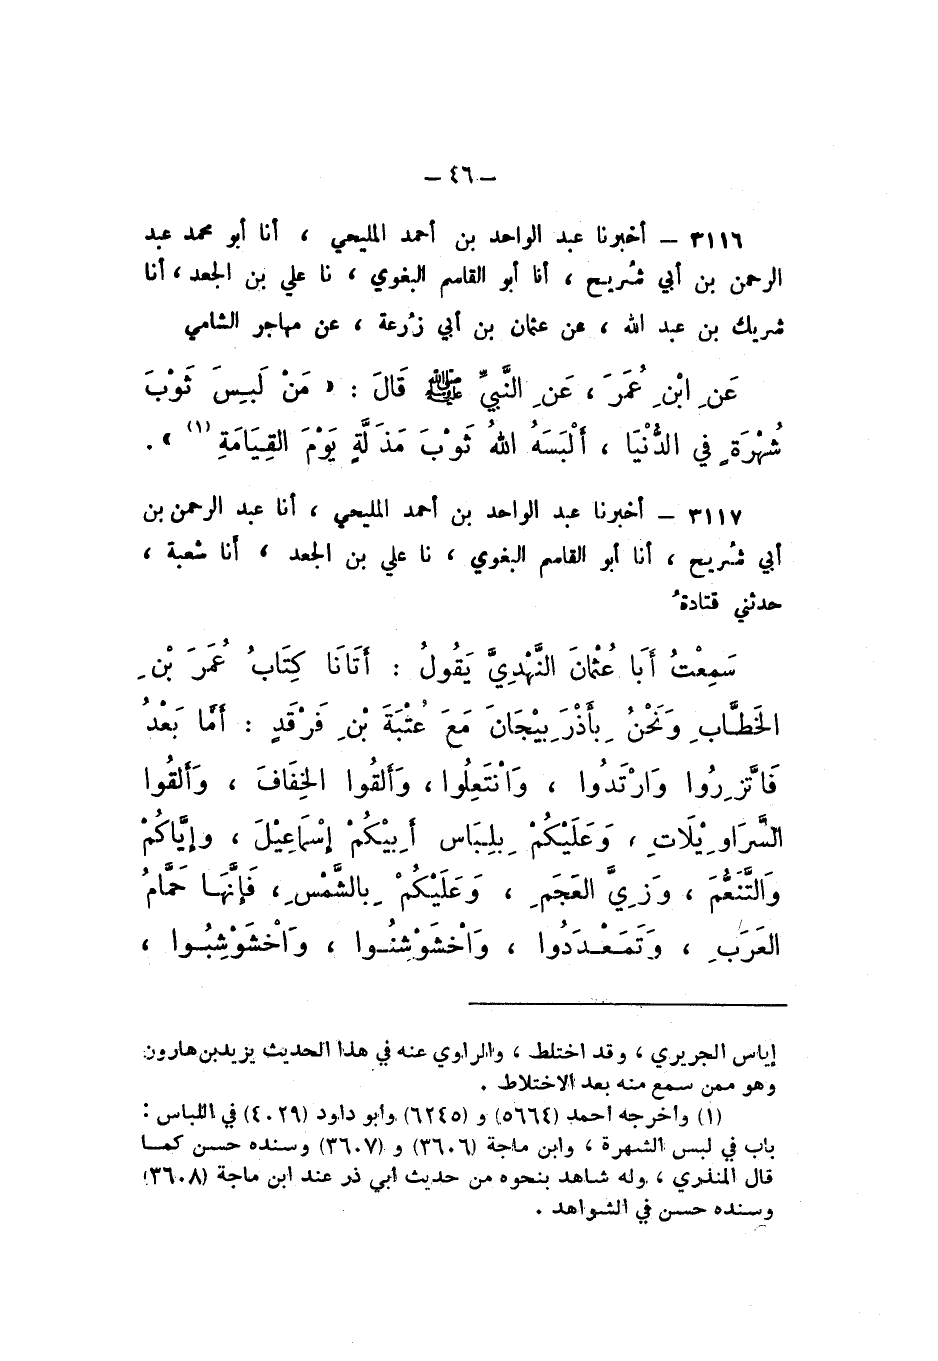 – ٤٦ –
٣١١٦ – أخبرنا عبد الواحد بن أحمد المليحي ، أنا أبو محمد عبد
الرحمن بن أبي شُريح ، أنا أبو القاسم البغوي ، نا علي بن الجعد ، أنا
شريك بن عبد الله ، عن عثمان بن أبي زُرعة ، عن مهاجر الشامي
عَنِ ابْنِ عُمَرَ ، عَنِ النَّبيِّ ﷺ قَالَ : « مَنْ لَبِسَ ثَوْبَ
شُهْرَةٍ في الدُّنْيَا ، أَلْبَسَهُ اللهُ ثَوْبَ مَذَلَّةٍ يَوْمَ القِيَامَةِ (١) » .
٣١١٧ – أخبرنا عبد الواحد بن أحمد المليحي ، أنا عبد الرحمن بن
أبي شُريح ، أنا أبو القاسم البغوي ، نا علي بن الجعد ، أنا شعبة ،
حدثني قتادةُ
سَمِعْتُ أَبَا عُثْمَانَ النَّهْدِيَّ يَقُولُ : أَتَانَا كِتَابُ عُمَرَ بْنِ
الخَطَّابِ وَنَحْنُ بِأَذْرَبِيجَانَ مَعَ عُتْبَةَ بْنِ فَرْقَدٍ : أَمَّا بَعْدُ
فَاتَّزِرُوا وَارْتَدُوا ، وَانْتَعِلُوا ، وَأَلقُوا الخِفَافَ ، وَأَلقُوا
السَّرَاوِيْلَاتِ ، وَعَلَيْكُمْ بِلِبَاسِ أَبِيْكُمْ إِسْمَاعِيْلَ ، وإِيَّاكُمْ
وَالتَّنَعُّمَ ، وَزِيَّ العَجَمِ ، وَعَلَيْكُمْ بِالشَّمْسِ ، فَإِنَّهَا حَمَّامُ
العَرَبِ ، وَتَمَعْدَدُوا ، وَاخْشَوْشِنُوا ، وَاخْشَوْشِبُوا ،
إياس الجريري ، وقد اختلط ، والراوي عنه في هذا الحديث يزيد بن هارون
وهو ممن سمع منه بعد الاختلاط .
(١) وأخرجه أحمد (٥٦٦٤) و (٦٢٤٥) وأبو داود (٤٠٢٩) في اللباس :
باب في لبس الشهرة ، وابن ماجة (٣٦٠٦) و (٣٦٠٧) وسنده حسن كما
قال المنذري ، وله شاهد بنحوه من حديث أبي ذر عند ابن ماجة (٣٦٠٨)
وسنده حسن في الشواهد .